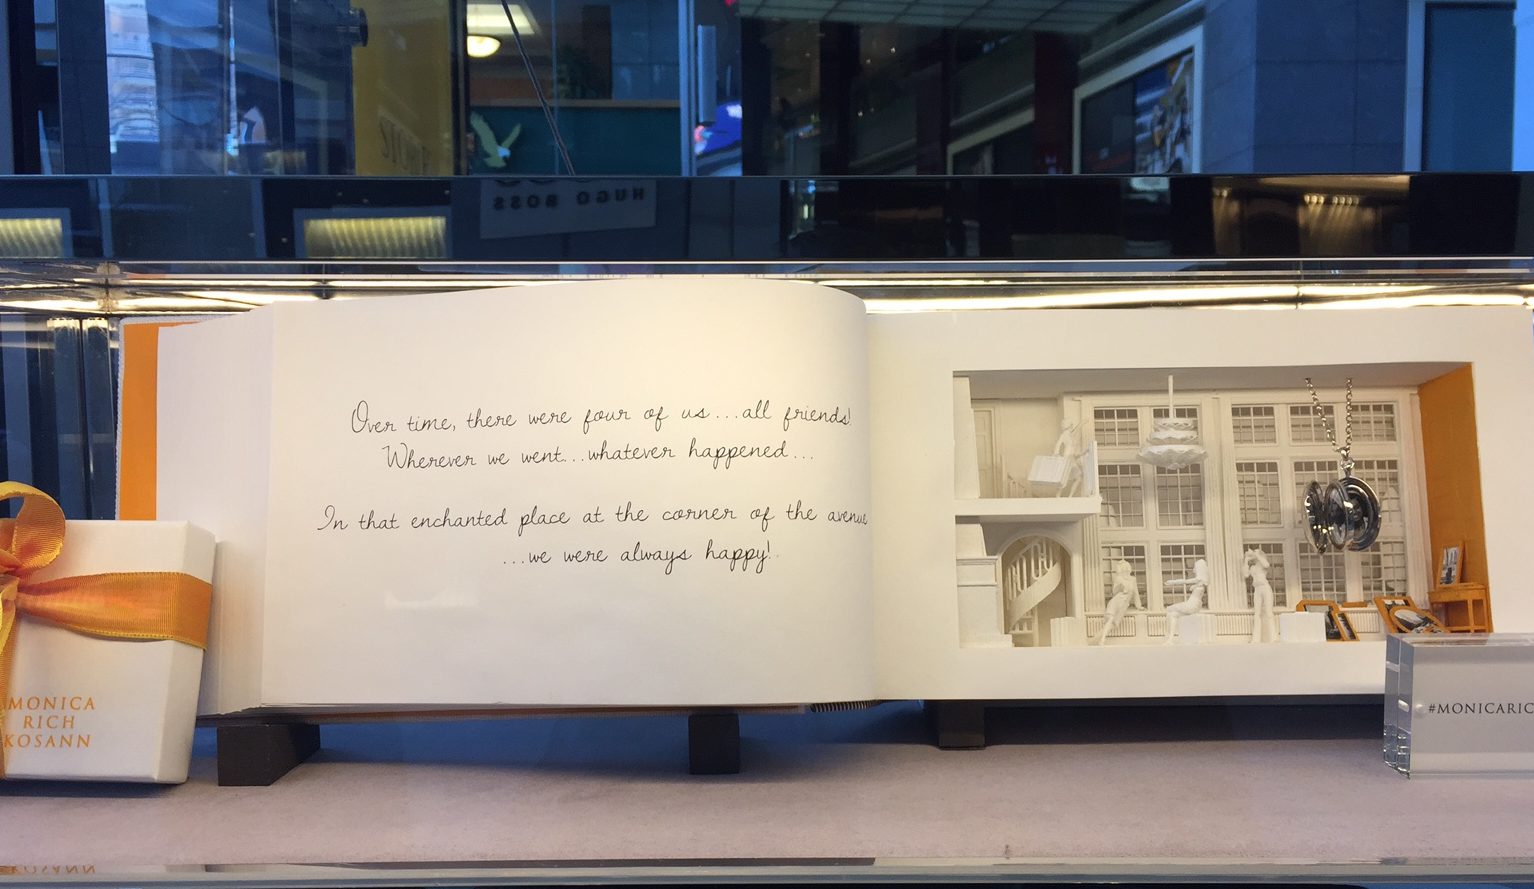 HUGO BOSS
Over time, there were four of us...all friends!
Wherever we went...whatever happened...
In that enchanted place at the corner of the avenue
...we were always happy!
MONICA
RICH
KOSANN
#MONICARIC